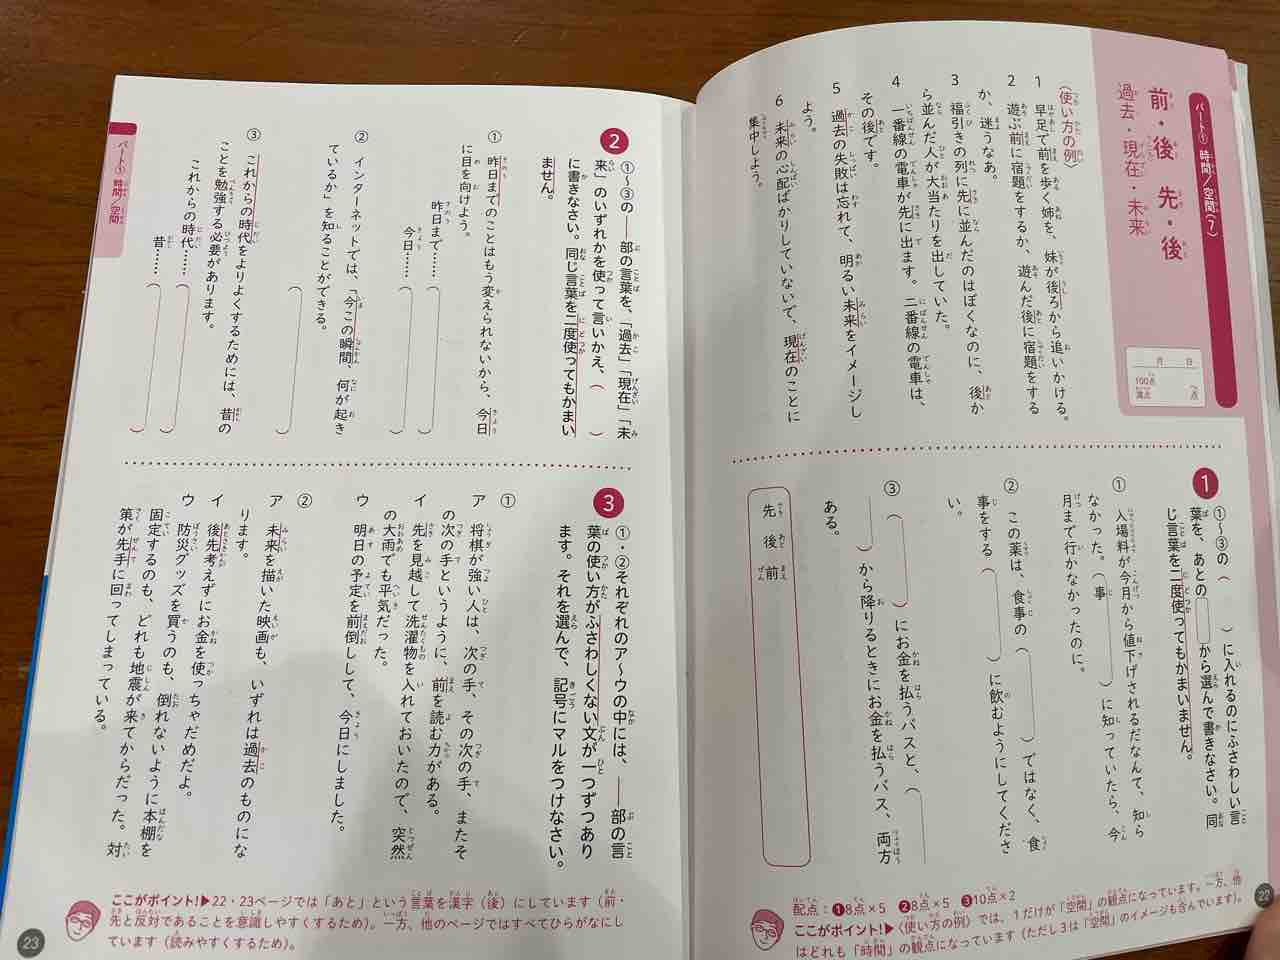 パート① 時間/空間(7)
前・後 先・後
過去・現在・未来
月 日
100点満点 点
〈使い方の例〉
1 早足で前を歩く姉を、妹が後ろから追いかける。
2 遊ぶ前に宿題をするか、遊んだ後に宿題をする
か、迷うなあ。
3 福引きの列に先に並んだのはぼくなのに、後か
ら並んだ人が大当たりを出していた。
4 一番線の電車が先に出ます。二番線の電車は、
その後です。
5 過去の失敗は忘れて、明るい未来をイメージし
よう。
6 未来の心配ばかりしていないで、現在のことに
集中しよう。
1 ①〜③の( )に入れるのにふさわしい言
葉を、あとの から選んで書きなさい。同
じ言葉を二度使ってもかまいません。
① 入場料が今月から値下げされるだなんて、知ら
なかった。(事 )に知っていたら、今
月まで行かなかったのに。
② この薬は、食事の( )ではなく、食
事をする( )に飲むようにしてくださ
い。
③ ( )にお金を払うバスと、(
)から降りるときにお金を払うバス、両方
ある。
先 後 前
配点:❶8点×5 ❷8点×5 ❸10点×2
ここがポイント!▶〈使い方の例〉では、1だけが「空間」の観点になっています。一方、他
はどれも「時間」の観点になっています(ただし3は「空間」のイメージも含んでいます)。
22
2 ①〜③の──部の言葉を、「過去」「現在」「未
来」のいずれかを使って言いかえ、( )
に書きなさい。同じ言葉を二度使ってもかまい
ません。
① 昨日までのことはもう変えられないから、今日
に目を向けよう。
昨日まで……( )
今日……( )
② インターネットでは、「今この瞬間、何が起き
ているか」を知ることができる。
( )
③ これからの時代をよりよくするためには、昔の
ことを勉強する必要があります。
これからの時代……( )
昔……( )
3 ①・②それぞれのア〜ウの中には、──部の言
葉の使い方がふさわしくない文が一つずつあり
ます。それを選んで、記号にマルをつけなさい。
①
ア 将棋が強い人は、次の手、その次の手、またそ
の次の手というように、前を読む力がある。
イ 先を見越して洗濯物を入れておいたので、突然
の大雨でも平気だった。
ウ 明日の予定を前倒しして、今日にしました。
②
ア 未来を描いた映画も、いずれは過去のものにな
ります。
イ 後先考えずにお金を使っちゃだめだよ。
ウ 防災グッズを買うのも、倒れないように本棚を
固定するのも、どれも地震が来てからだった。対
策が先手に回ってしまっている。
ここがポイント!▶22・23ページでは「あと」という言葉を漢字(後)にしています(前・
先と反対であることを意識しやすくするため)。一方、他のページではすべてひらがなにし
ています(読みやすくするため)。
23
パート① 時間/空間